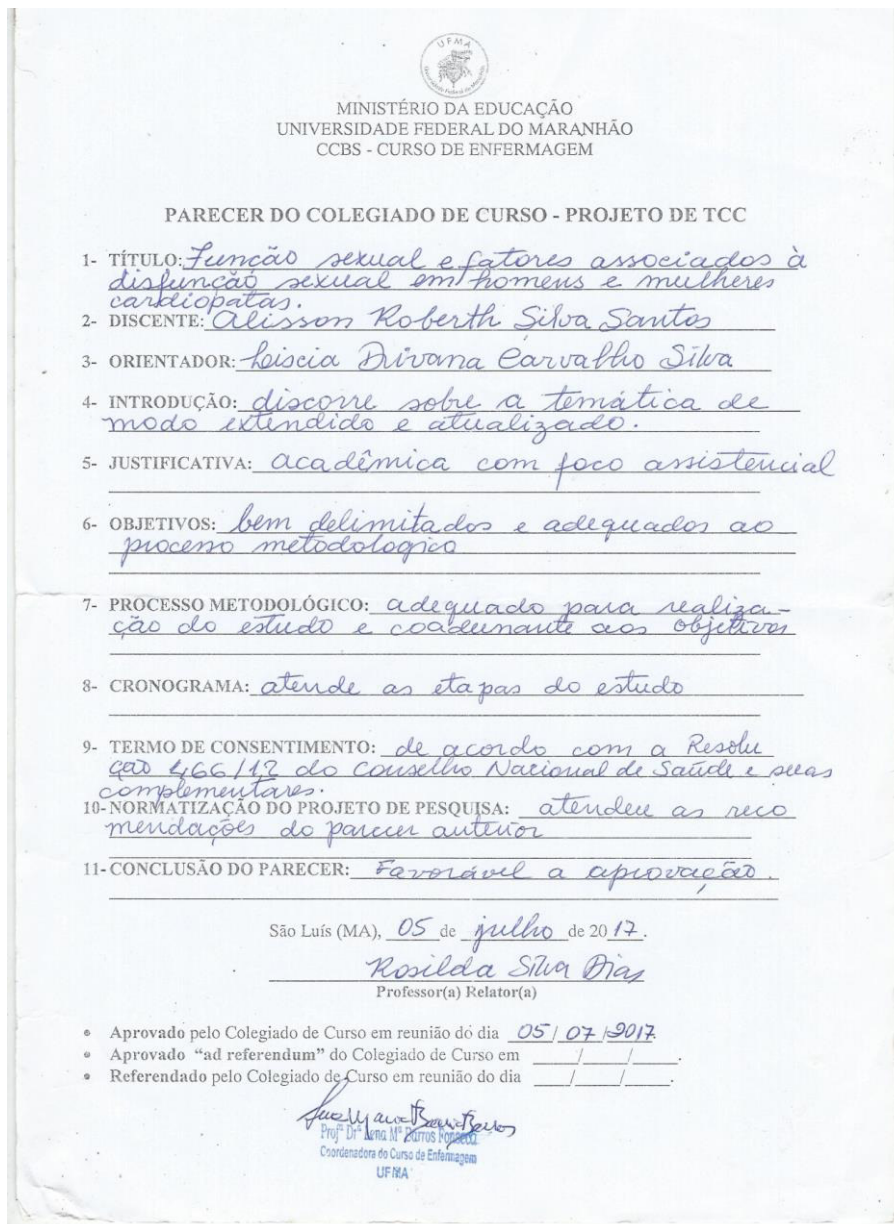 UFMA
Universidade Federal do Maranhão
MINISTÉRIO DA EDUCAÇÃO
UNIVERSIDADE FEDERAL DO MARANHÃO
CCBS - CURSO DE ENFERMAGEM
PARECER DO COLEGIADO DE CURSO - PROJETO DE TCC
1- TÍTULO: Função sexual e fatores associados à
disfunção sexual em homens e mulheres
cardiopatas.
2- DISCENTE: Alisson Roberth Silva Santos
3- ORIENTADOR: Liscia Divana Carvalho Silva
4- INTRODUÇÃO: discorre sobre a temática de
modo extendido e atualizado.
5- JUSTIFICATIVA: acadêmica com foco assistencial
6- OBJETIVOS: bem delimitados e adequados ao
processo metodologico
7- PROCESSO METODOLÓGICO: adequado para realiza-
ção do estudo e coadunante aos objetivos
8- CRONOGRAMA: atende as etapas do estudo
9- TERMO DE CONSENTIMENTO: de acordo com a Resolu
ção 466/12 do Conselho Nacional de Saúde e suas
complementares.
10- NORMATIZAÇÃO DO PROJETO DE PESQUISA: atendeu as reco
mendações do parecer anterior
11- CONCLUSÃO DO PARECER: Favorável a aprovação.
São Luís (MA), 05 de julho de 2017.
Rosilda Silva Dias
Professor(a) Relator(a)
• Aprovado pelo Colegiado de Curso em reunião do dia 05/07/2017.
• Aprovado "ad referendum" do Colegiado de Curso em ____/____/____.
• Referendado pelo Colegiado de Curso em reunião do dia ____/____/____.
Profª Drª Lena Mª Barros Fonseca
Coordenadora do Curso de Enfermagem
UFMA